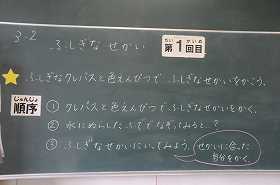 3-2
ふしぎなせかい
だい かいめ
第1回目
ふしぎなクレパスと色えんぴつで ふしぎなせかいをかこう。
じゅんじょ
順序
① クレパスと色えんぴつで ふしぎなせかいをかく。
② 水にぬらしたふででなぞってみると…?
③ ふしぎなせかいにいってみよう。
せかいに合った
自分をかく。